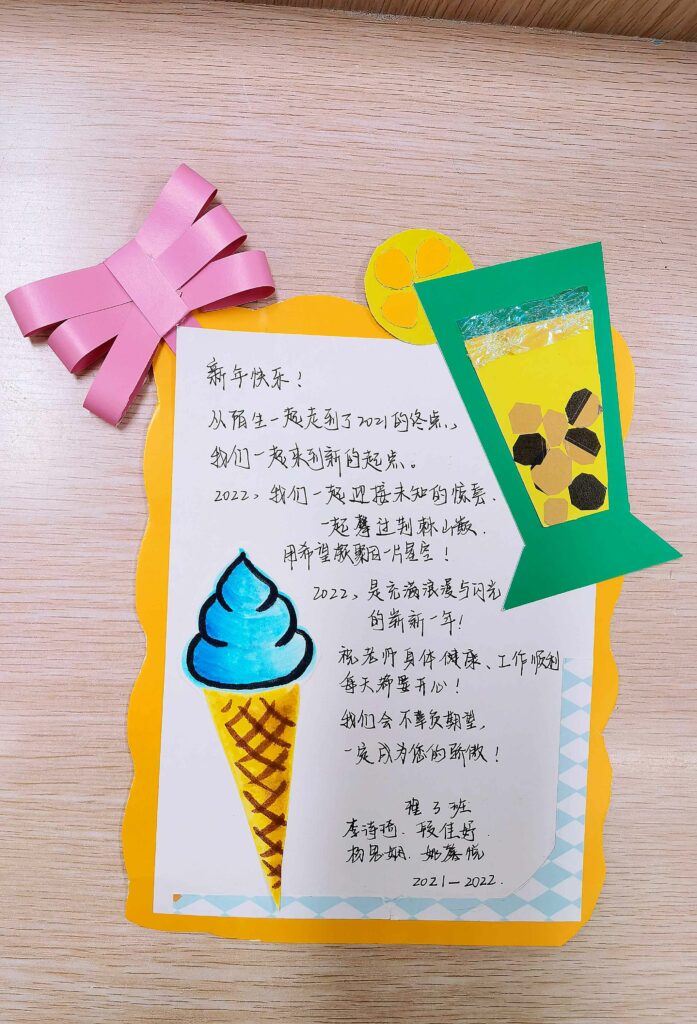 新年快乐！
从陌生一起走到了2021的终点，
我们一起来到新的起点。
2022，我们一起迎接未知的惊喜，
一起攀过荆棘山峻，
用希望凝聚日一片星空！
2022，是充满浪漫与闪光
的崭新一年！
祝老师身体健康、工作顺利
每天都要开心！
我们会不辜负期望，
一定成为您的骄傲！
理3班
李诗琦 段佳妤
杨思娴
2021—2022.